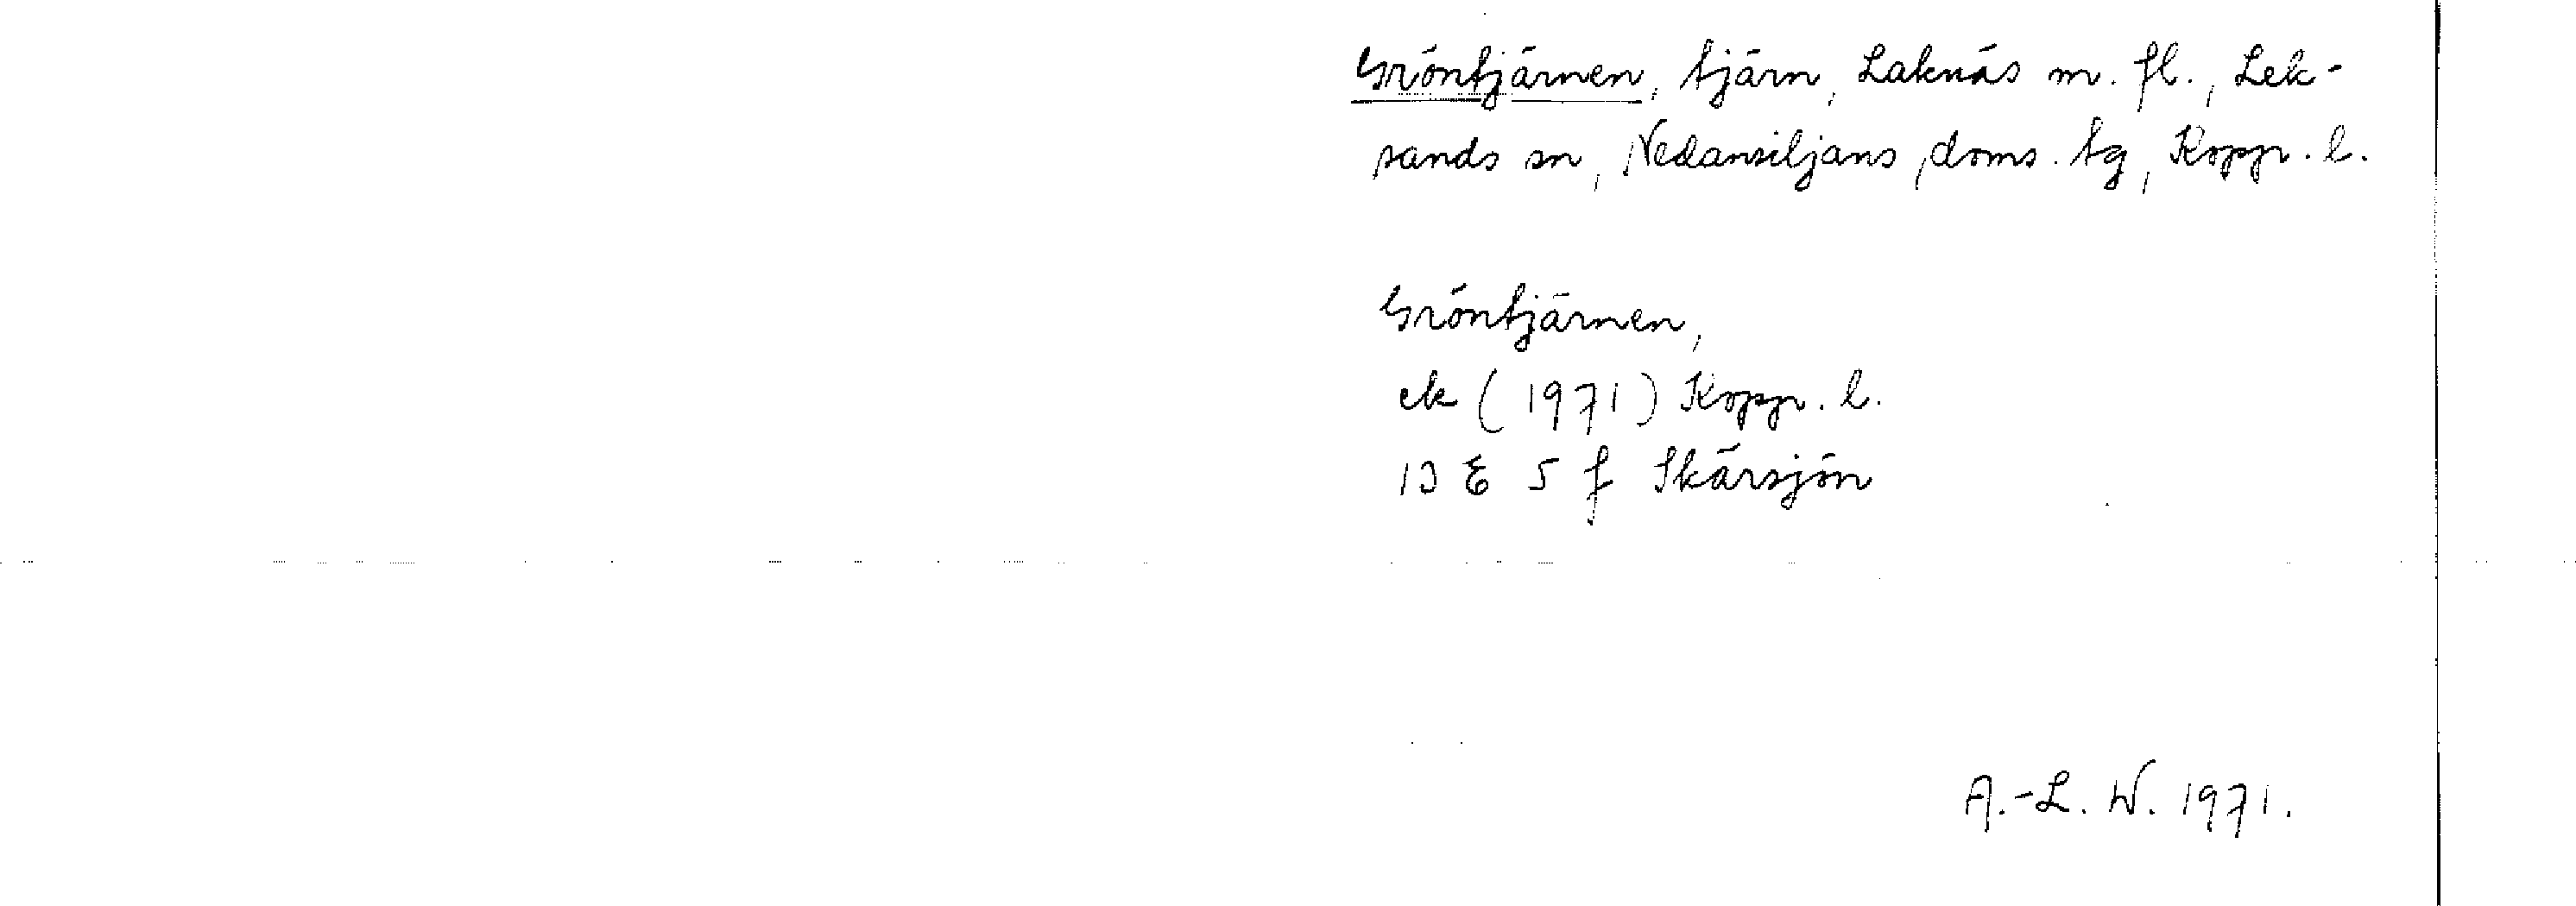 Gröntjärnen, tjärn, Laknäs m. fl., Lek-
sands sn, Nedansiljans doms. tg, Kopp. l.
Gröntjärnen,
ek (1971) Kopp. l.
13 E 5 f Skärsjön
A.-L. W. 1971.